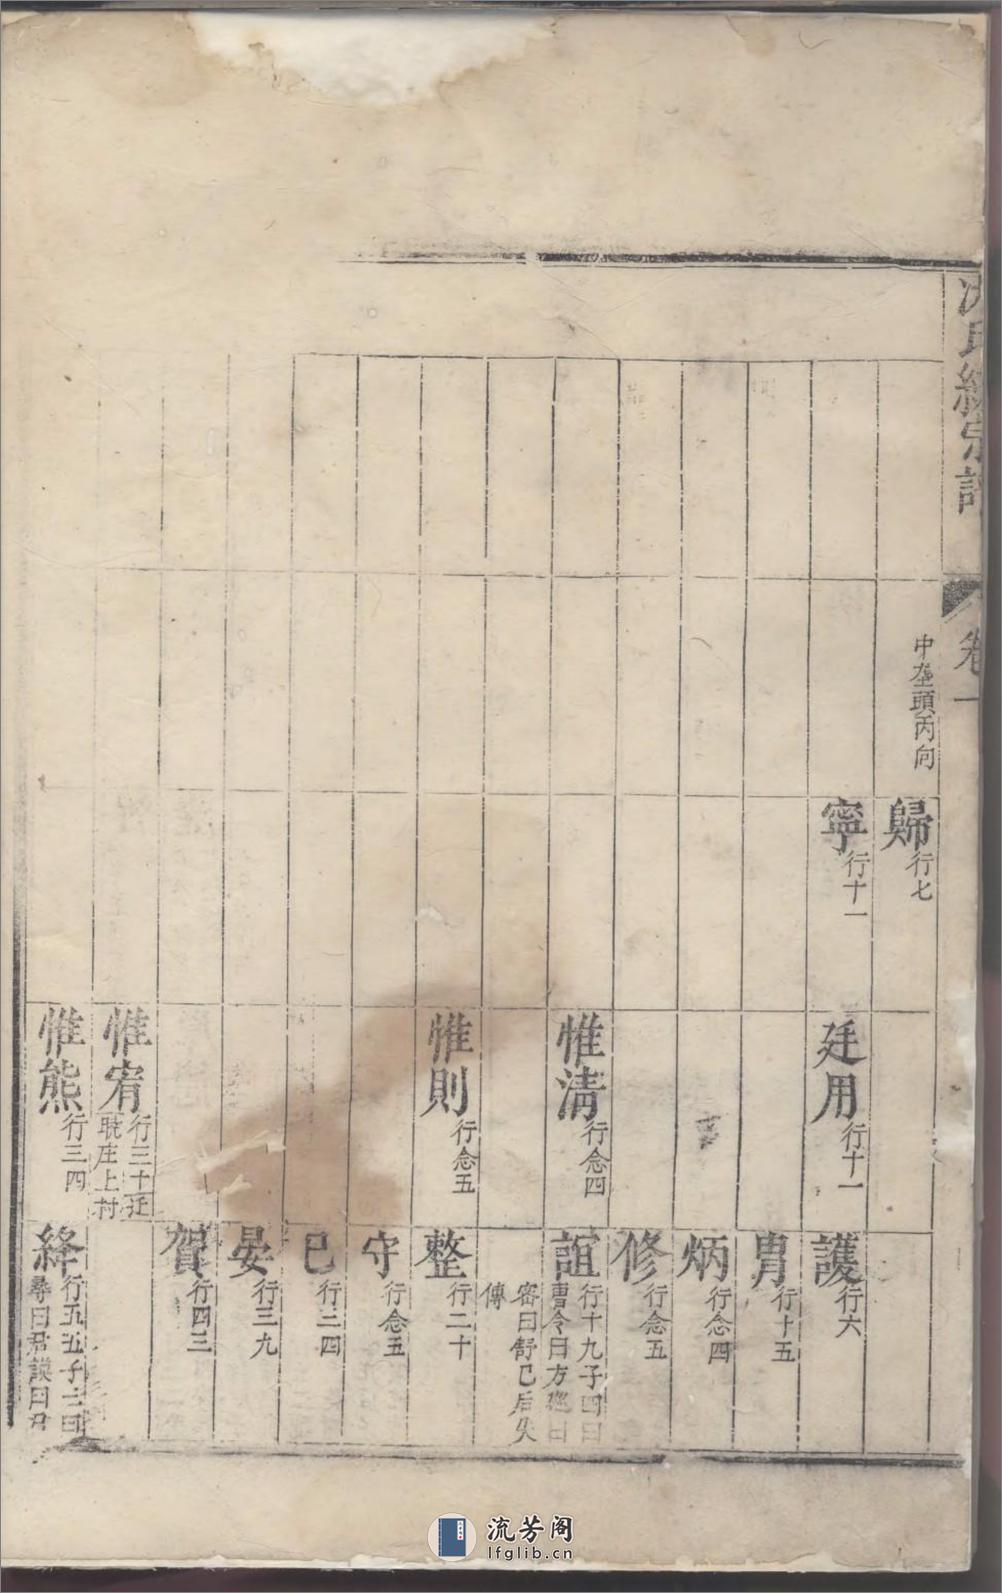 氏統宗譜
卷一
中垄頭丙向
歸行七
寧行十一
廷用行十一
護行六
胄行十五
炳行念四
修行念五
惟清行念四
誼行十九子四曰
曹令曰方 曰
密曰舒巳后失
傳
惟則行念五
整行二十
守行念五
巳行三四
晏行三九
賀行四三
惟宥行三十迁
庄上村
惟熊行三四
絳行五五子三曰
尋曰君謨曰君
流芳阁
lfglib.cn